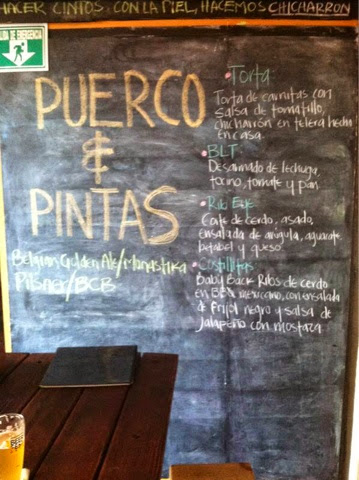 HACER CINTOS CON LA PIEL, HACEMOS CHICHARRON
DE EMERGENCIA
PUERCO
&
PINTAS
Belgian Golden Ale/Monastika
Pilsner/BCB
• Torta
Torta de carnitas con
salsa de tomatillo,
chicharrón en telera hecho
en casa.
• BLT
Desarmado de lechuga,
tocino, tomate y pan
• Rib Eye
Corte de cerdo, asado,
ensalada de arúgula, aguacate,
betabel y queso
• Costillitas
Baby Back Ribs de cerdo
en BBQ mexicano, con ensalada
de frijol negro y salsa de
jalapeño con mostaza